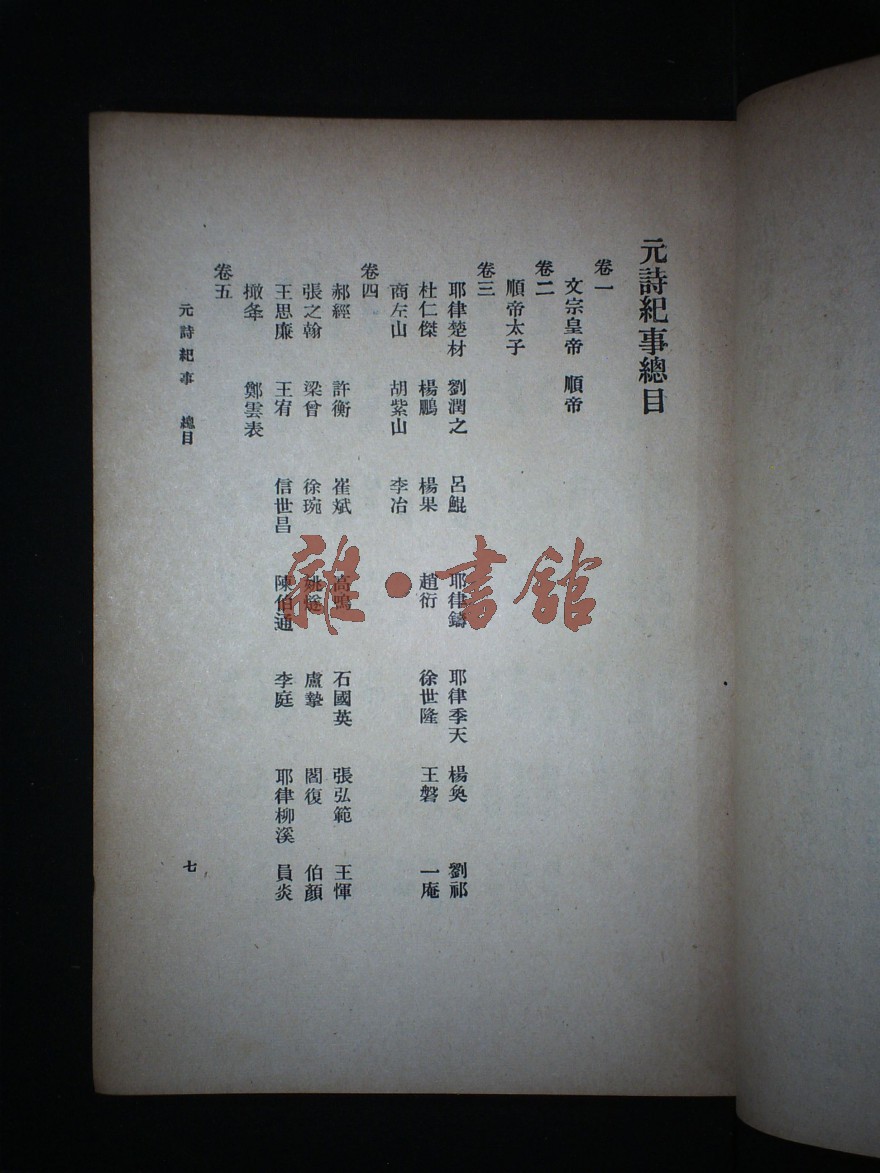 元詩紀事總目
卷一
文宗皇帝 順帝
卷二
順帝太子
卷三
耶律楚材 劉潤之 呂鯤 耶律鑄 耶律季天 楊奐 劉祁
杜仁傑 楊鵬 楊果 趙衍 徐世隆 王磐 一庵
商左山 胡紫山 李冶
卷四
郝經 許衡 崔斌 高鳴 石國英 張弘範 王惲
張之翰 梁曾 徐琬 姚燧 盧摯 閻復 伯顏
王思廉 王宥 信世昌 陳伯通 李庭 耶律柳溪 員炎
鄭雲表
卷五
元詩紀事 總目 七
雜·書館